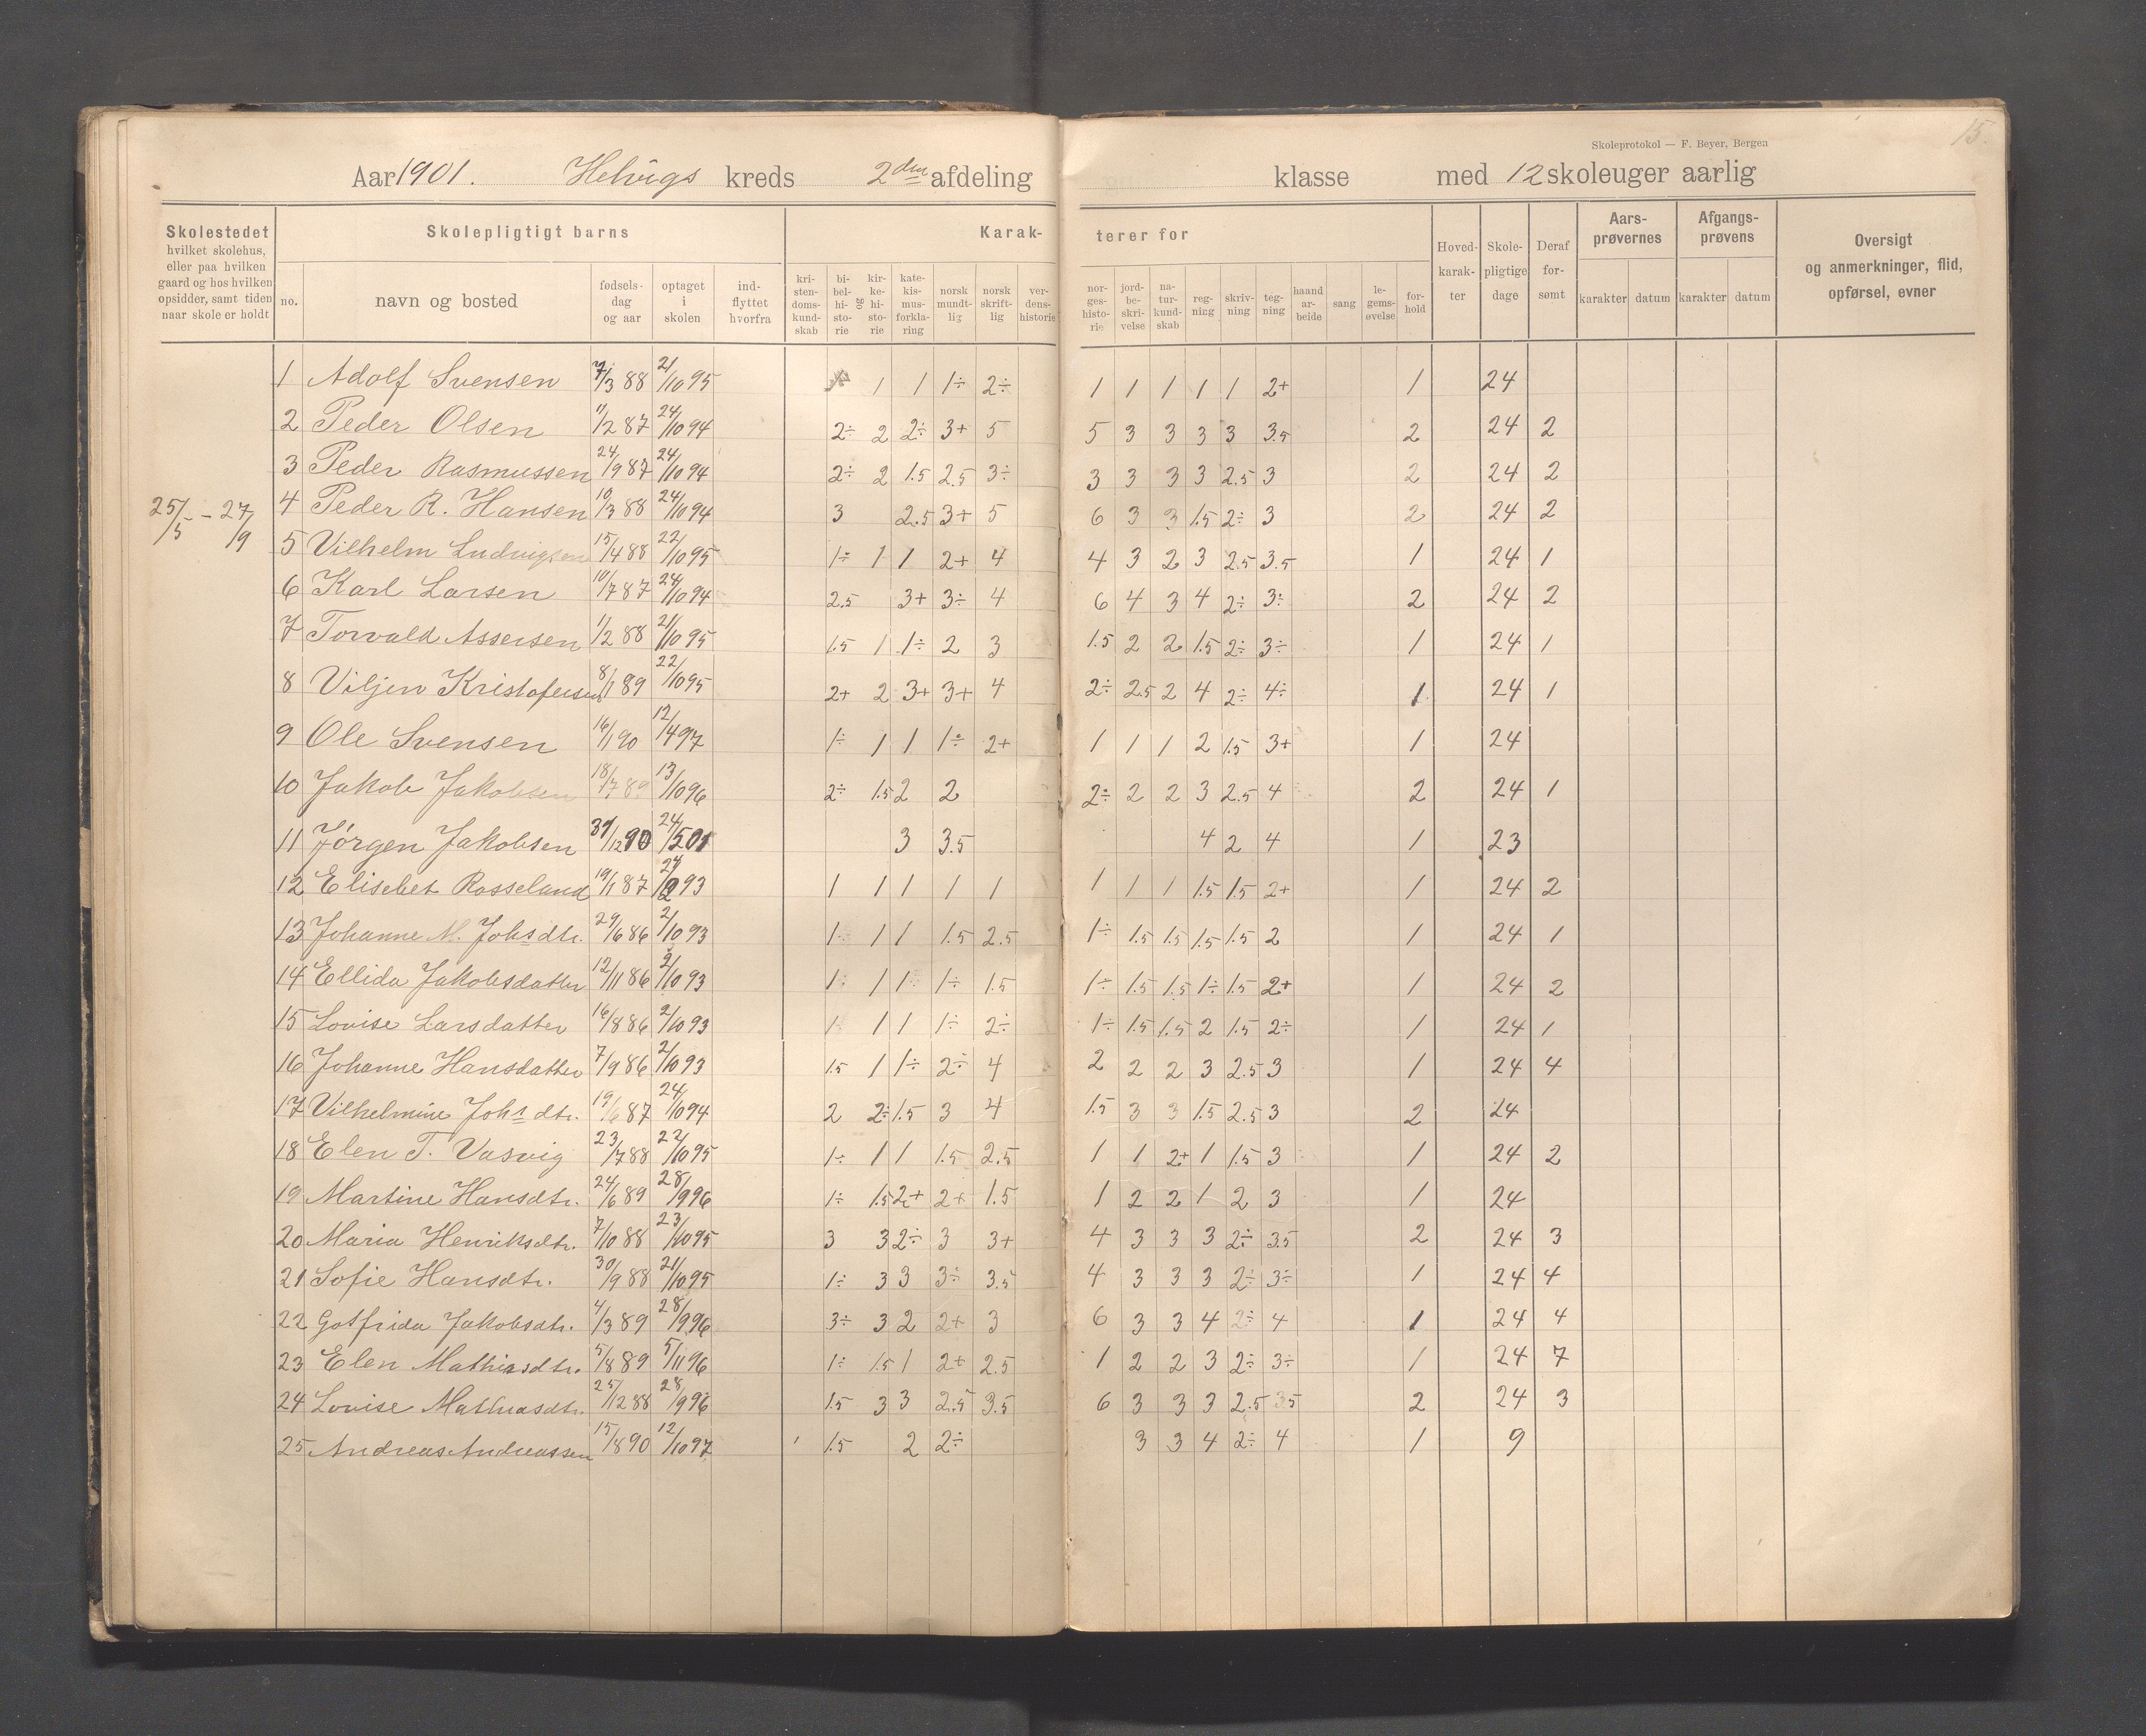 15.
Skoleprotokol — F. Beyer, Bergen
Aar 1901. Helvigs kreds 2den afdeling klasse med 12 skoleuger aarlig
Skolestedet hvilket skolehus, eller paa hvilken gaard og hos hvilken opsidder, samt tiden naar skole er holdt
Skolepligtigt barns
Karakterer for
no. navn og bosted fødsels-dag og aar optaget i skolen ind-flyttet hvorfra
kri-sten-doms-kund-skab bi-bel-hi-sto-rie og kir-ke-hi-sto-rie kate-kis-mus-forkla-ring norsk mundt-lig norsk skrift-lig ver-dens-historie
nor-ges-histo-rie jord-be-skri-velse na-tur-kund-skab reg-ning skriv-ning teg-ning haand ar-beide sang le-gems-øvelse for-hold
Hoved-karak-ter Skole-pligtige dage Deraf for-sømt Aars-prøvernes karakter datum Afgangs-prøvens karakter datum
Oversigt og anmerkninger, flid, opførsel, evner
25/5 - 27/9
1 Adolf Svensen 7/3 88 21/10 95 1 1 1÷ 2÷ 1 1 1 1 1 2+ 1 24
2 Peder Olsen 11/2 87 24/10 94 2÷ 2 2÷ 3+ 5 5 3 3 3 3 3.5 2 24 2
3 Peder Rasmussen 24/9 87 24/10 94 2÷ 2 1.5 2.5 3÷ 3 3 3 3 2.5 3 2 24 2
4 Peder R. Hansen 10/3 88 24/10 94 3 2.5 3+ 5 6 3 3 1.5 2÷ 3 2 24 2
5 Vilhelm Ludvigsen 15/4 88 22/10 95 1÷ 1 1 2+ 4 4 3 2 3 2.5 3.5 1 24 1
6 Karl Larsen 10/7 87 24/10 94 2.5 3+ 3÷ 4 6 4 3 4 2÷ 3÷ 2 24 2
7 Torvald Assersen 1/2 88 21/10 95 1.5 1 1÷ 2 3 1.5 2 2 1.5 2÷ 3÷ 1 24 1
8 Viljen Kristofersen 8/1 89 22/10 95 2+ 2 3+ 3+ 4 2÷ 2.5 2 4 2÷ 4÷ 1 24 1
9 Ole Svensen 16/1 90 12/4 97 1÷ 1 1 1÷ 2+ 1 1 1 2 1.5 3+ 1 24
10 Jakob Jakobsen 18/7 89 13/10 96 2÷ 1.5 2 2 2÷ 2 2 3 2.5 4 2 24 1
11 Jørgen Jakobsen 31/12 90 24/5 01 3 3.5 4 2 4 1 23
12 Elisebet Rosseland 19/1 87 93 1 1 1 1 1 1 1 1 1.5 1.5 2+ 1 24 2
13 Johanne M. Johsdtr. 29/6 86 2/10 93 1÷ 1 1 1.5 2.5 1÷ 1.5 1.5 1.5 1.5 2 1 24 1
14 Ellida Jakobsdatter 12/11 86 2/10 93 1÷ 1 1 1÷ 1.5 1÷ 1.5 1.5 1÷ 1.5 2+ 1 24 2
15 Lovise Larsdatter 16/8 86 2/10 93 1 1 1 1÷ 2÷ 1÷ 1.5 1.5 2 1.5 2÷ 1 24 1
16 Johanne Hansdatter 7/9 86 2/10 93 1.5 1 1÷ 2÷ 4 2 2 2 3 2.5 3 1 24 4
17 Vilhelmine Johsdtr. 19/6 87 24/10 94 2 2÷ 1.5 3 4 1.5 3 3 1.5 2.5 3 2 24
18 Elen T. Vasvig 23/7 88 22/10 95 1÷ 1 1 1.5 2.5 1 1 2+ 1 1.5 3 1 24 2
19 Martine Hansdtr. 24/6 89 28/9 96 1÷ 1.5 2+ 2+ 1.5 1 2 2 1 2 3 1 24
20 Maria Henriksdtr. 7/10 88 23/10 95 3 3 2÷ 3 3+ 4 3 3 3 2÷ 3.5 2 24 3
21 Sofie Hansdtr. 30/9 88 21/10 95 1÷ 3 3 3÷ 3.5 4 3 3 3 2÷ 3÷ 1 24 4
22 Gotfrida Jakobsdtr. 4/3 89 28/9 96 3÷ 3 2 2+ 3 6 3 3 4 2÷ 4 1 24 4
23 Elen Mathiasdtr. 5/8 89 5/11 96 1÷ 1.5 1 2+ 2.5 1 2 2 3 2÷ 3÷ 1 24 7
24 Lovise Mathiasdtr. 25/12 88 28/9 96 1.5 3 3 2.5 3.5 6 3 3 3 2.5 3.5 2 24 3
25 Andreas Andreassen 15/8 90 12/10 97 1.5 2 2÷ 3 3 4 2÷ 4 1 9